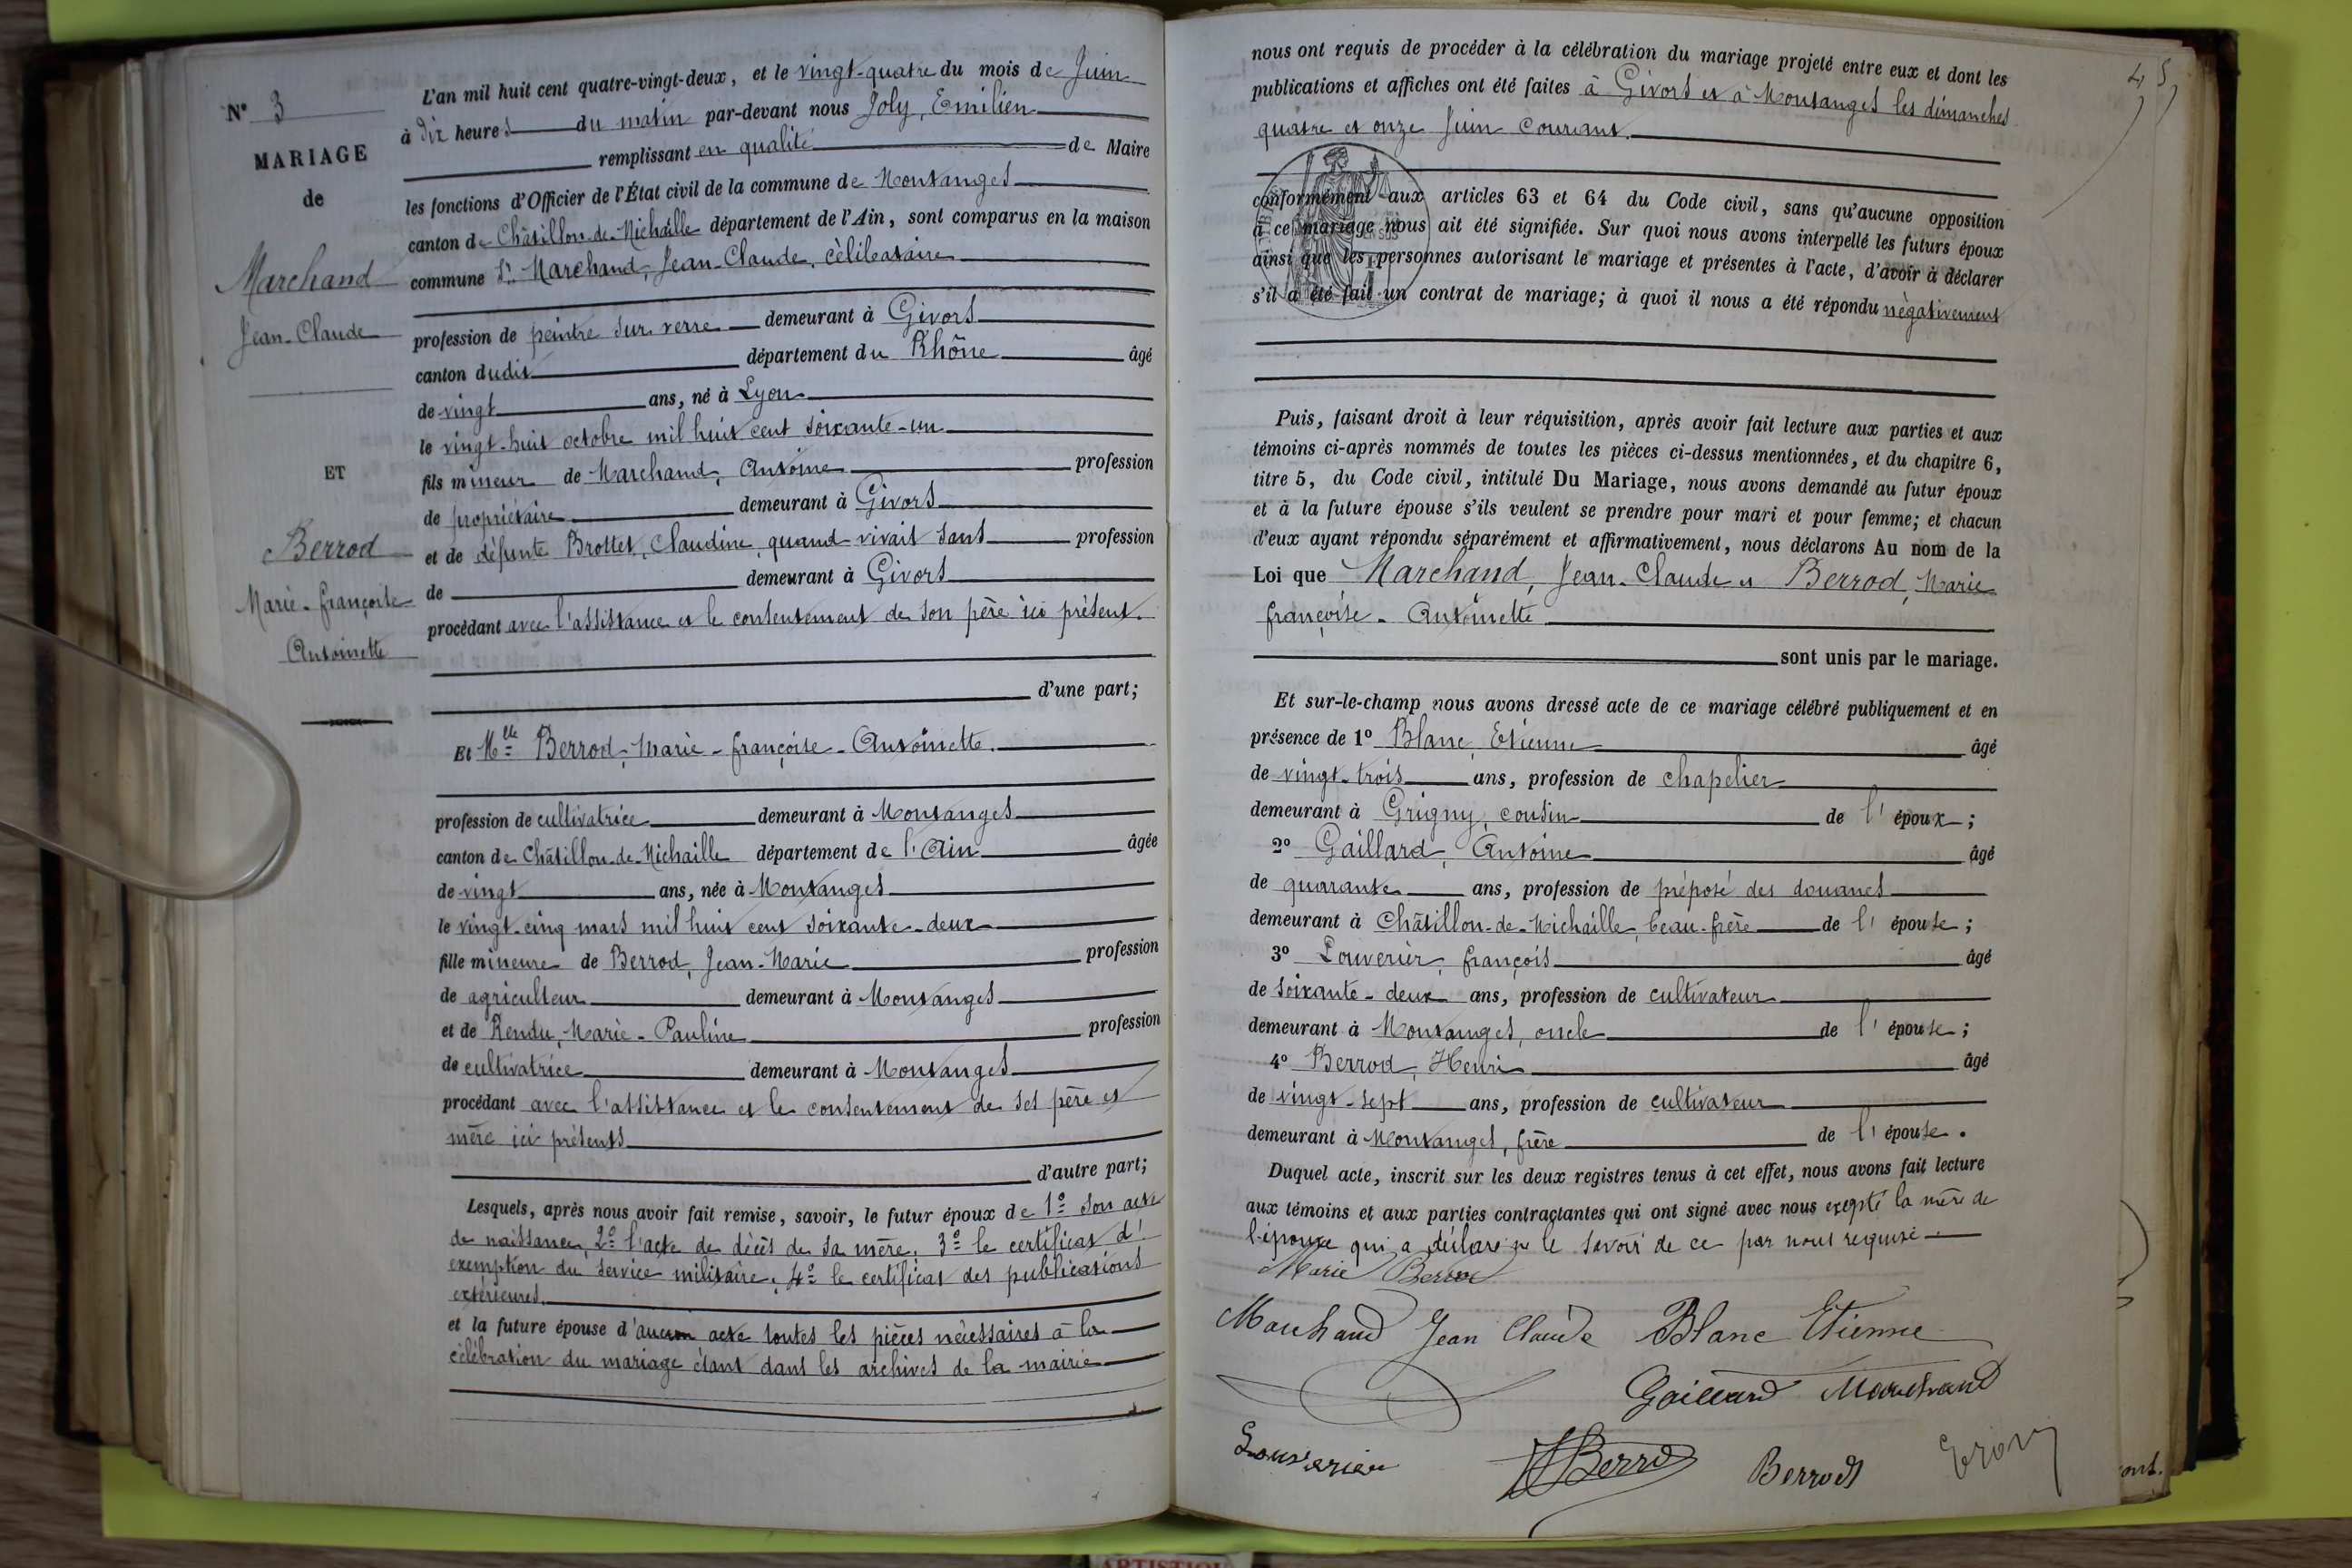 N° 3
MARIAGE
de
Marchand
Jean-Claude
ET
Berrod
Marie-françoise
Antoinette
L'an mil huit cent quatre-vingt-deux, et le vingt-quatre du mois de Juin
à dix heures du matin par-devant nous Joly, Emilien
remplissant en qualité de Maire
les fonctions d'Officier de l'État civil de la commune de Montanges
canton de Châtillon-de-Michaille département de l'Ain, sont comparus en la maison
commune Sr. Marchand, Jean-Claude, cèlibataire
profession de peintre sur verre demeurant à Givors
canton dudit département du Rhône âgé
de vingt ans, né à Lyon
le vingt-huit octobre mil huit cent soixante-un
fils mineur de Marchand, Antoine profession
de propriétaire demeurant à Givors
et de défunte Brottet, Claudine, quand vivait sans profession
de demeurant à Givors
procédant avec l'assistance et le consentement de son père ici présent.
d'une part;
Et Mlle Berrod, Marie-françoise-Antoinette.
profession de cultivatrice demeurant à Montanges
canton de Châtillon-de-Michaille département de l'Ain âgée
de vingt ans, née à Montanges
le vingt-cinq mars mil huit cent soixante-deux
fille mineure de Berrod, Jean-Marie profession
de agriculteur demeurant à Montanges
et de Rendu, Marie-Pauline profession
de cultivatrice demeurant à Montanges
procédant avec l'assistance et le consentement de ses père et
mère ici présents
d'autre part;
Lesquels, après nous avoir fait remise, savoir, le futur époux de 1° son acte
de naissance, 2° l'acte de décès de sa mère, 3° le certificat d'
exemption du service militaire, 4° le certificat des publications
extérieures.
et la future épouse d'aucun acte toutes les pièces nécessaires à la
célébration du mariage étant dans les archives de la mairie
45
nous ont requis de procéder à la célébration du mariage projeté entre eux et dont les
publications et affiches ont été faites à Givors et à Montanges les dimanches
quatre et onze Juin courant.
conformément aux articles 63 et 64 du Code civil, sans qu'aucune opposition
à ce mariage nous ait été signifiée. Sur quoi nous avons interpellé les futurs époux
ainsi que les personnes autorisant le mariage et présentes à l'acte, d'avoir à déclarer
s'il a été fait un contrat de mariage; à quoi il nous a été répondu négativement
Puis, faisant droit à leur réquisition, après avoir fait lecture aux parties et aux
témoins ci-après nommés de toutes les pièces ci-dessus mentionnées, et du chapitre 6,
titre 5, du Code civil, intitulé Du Mariage, nous avons demandé au futur époux
et à la future épouse s'ils veulent se prendre pour mari et pour femme; et chacun
d'eux ayant répondu séparément et affirmativement, nous déclarons Au nom de la
Loi que Marchand, Jean-Claude et Berrod, Marie
françoise-Antoinette
sont unis par le mariage.
Et sur-le-champ nous avons dressé acte de ce mariage célébré publiquement et en
présence de 1° Blanc, Etienne âgé
de vingt-trois ans, profession de chapelier
demeurant à Grigny, cousin de l'époux;
2° Gaillard, Antoine âgé
de quarante ans, profession de préposé des douanes
demeurant à Châtillon-de-Michaille, beau-frère de l'épouse;
3° Louverier, françois âgé
de soixante-deux ans, profession de cultivateur
demeurant à Montanges, oncle de l'épouse;
4° Berrod, Henri âgé
de vingt-sept ans, profession de cultivateur
demeurant à Montanges, frère de l'épouse.
Duquel acte, inscrit sur les deux registres tenus à cet effet, nous avons fait lecture
aux témoins et aux parties contractantes qui ont signé avec nous excepté la mère de
l'épouse qui a déclaré ne le savoir de ce par nous requise
Marie Berrod
Marchand Jean Claude Blanc Etienne
Gaillard Marchand
Louverier Berrod Berrod
ont.